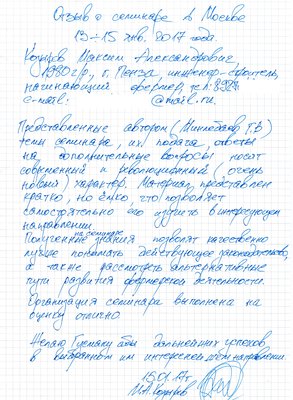 Отзыв о семинаре в Москве
13-15 янв. 2017 года.
Козырев Максим Александрович,
1980 г.р., г. Пенза, инженер-строитель,
начинающий фермер, тел.: 8927
e-mail: @mail.ru.
Представленные автором (Миннебаев Г.В)
темы семинара, их подача, ответы
на дополнительные вопросы носят
современный и революционный (очень
новый) характер. Материал представлен
кратко, но ёмко, что позволяет
самостоятельно его изучить в интересующем
направлении.
Полученные на семинаре знания позволят качественно
лучше понимать действующее законодательство,
а также рассмотреть альтернативные
пути развития фермерской деятельности.
Организация семинара выполнена на
оценку отлично
Желаю дальнейших успехов
в выбранном им интересном направлении.
15.01.17г.
М.А. Козырев